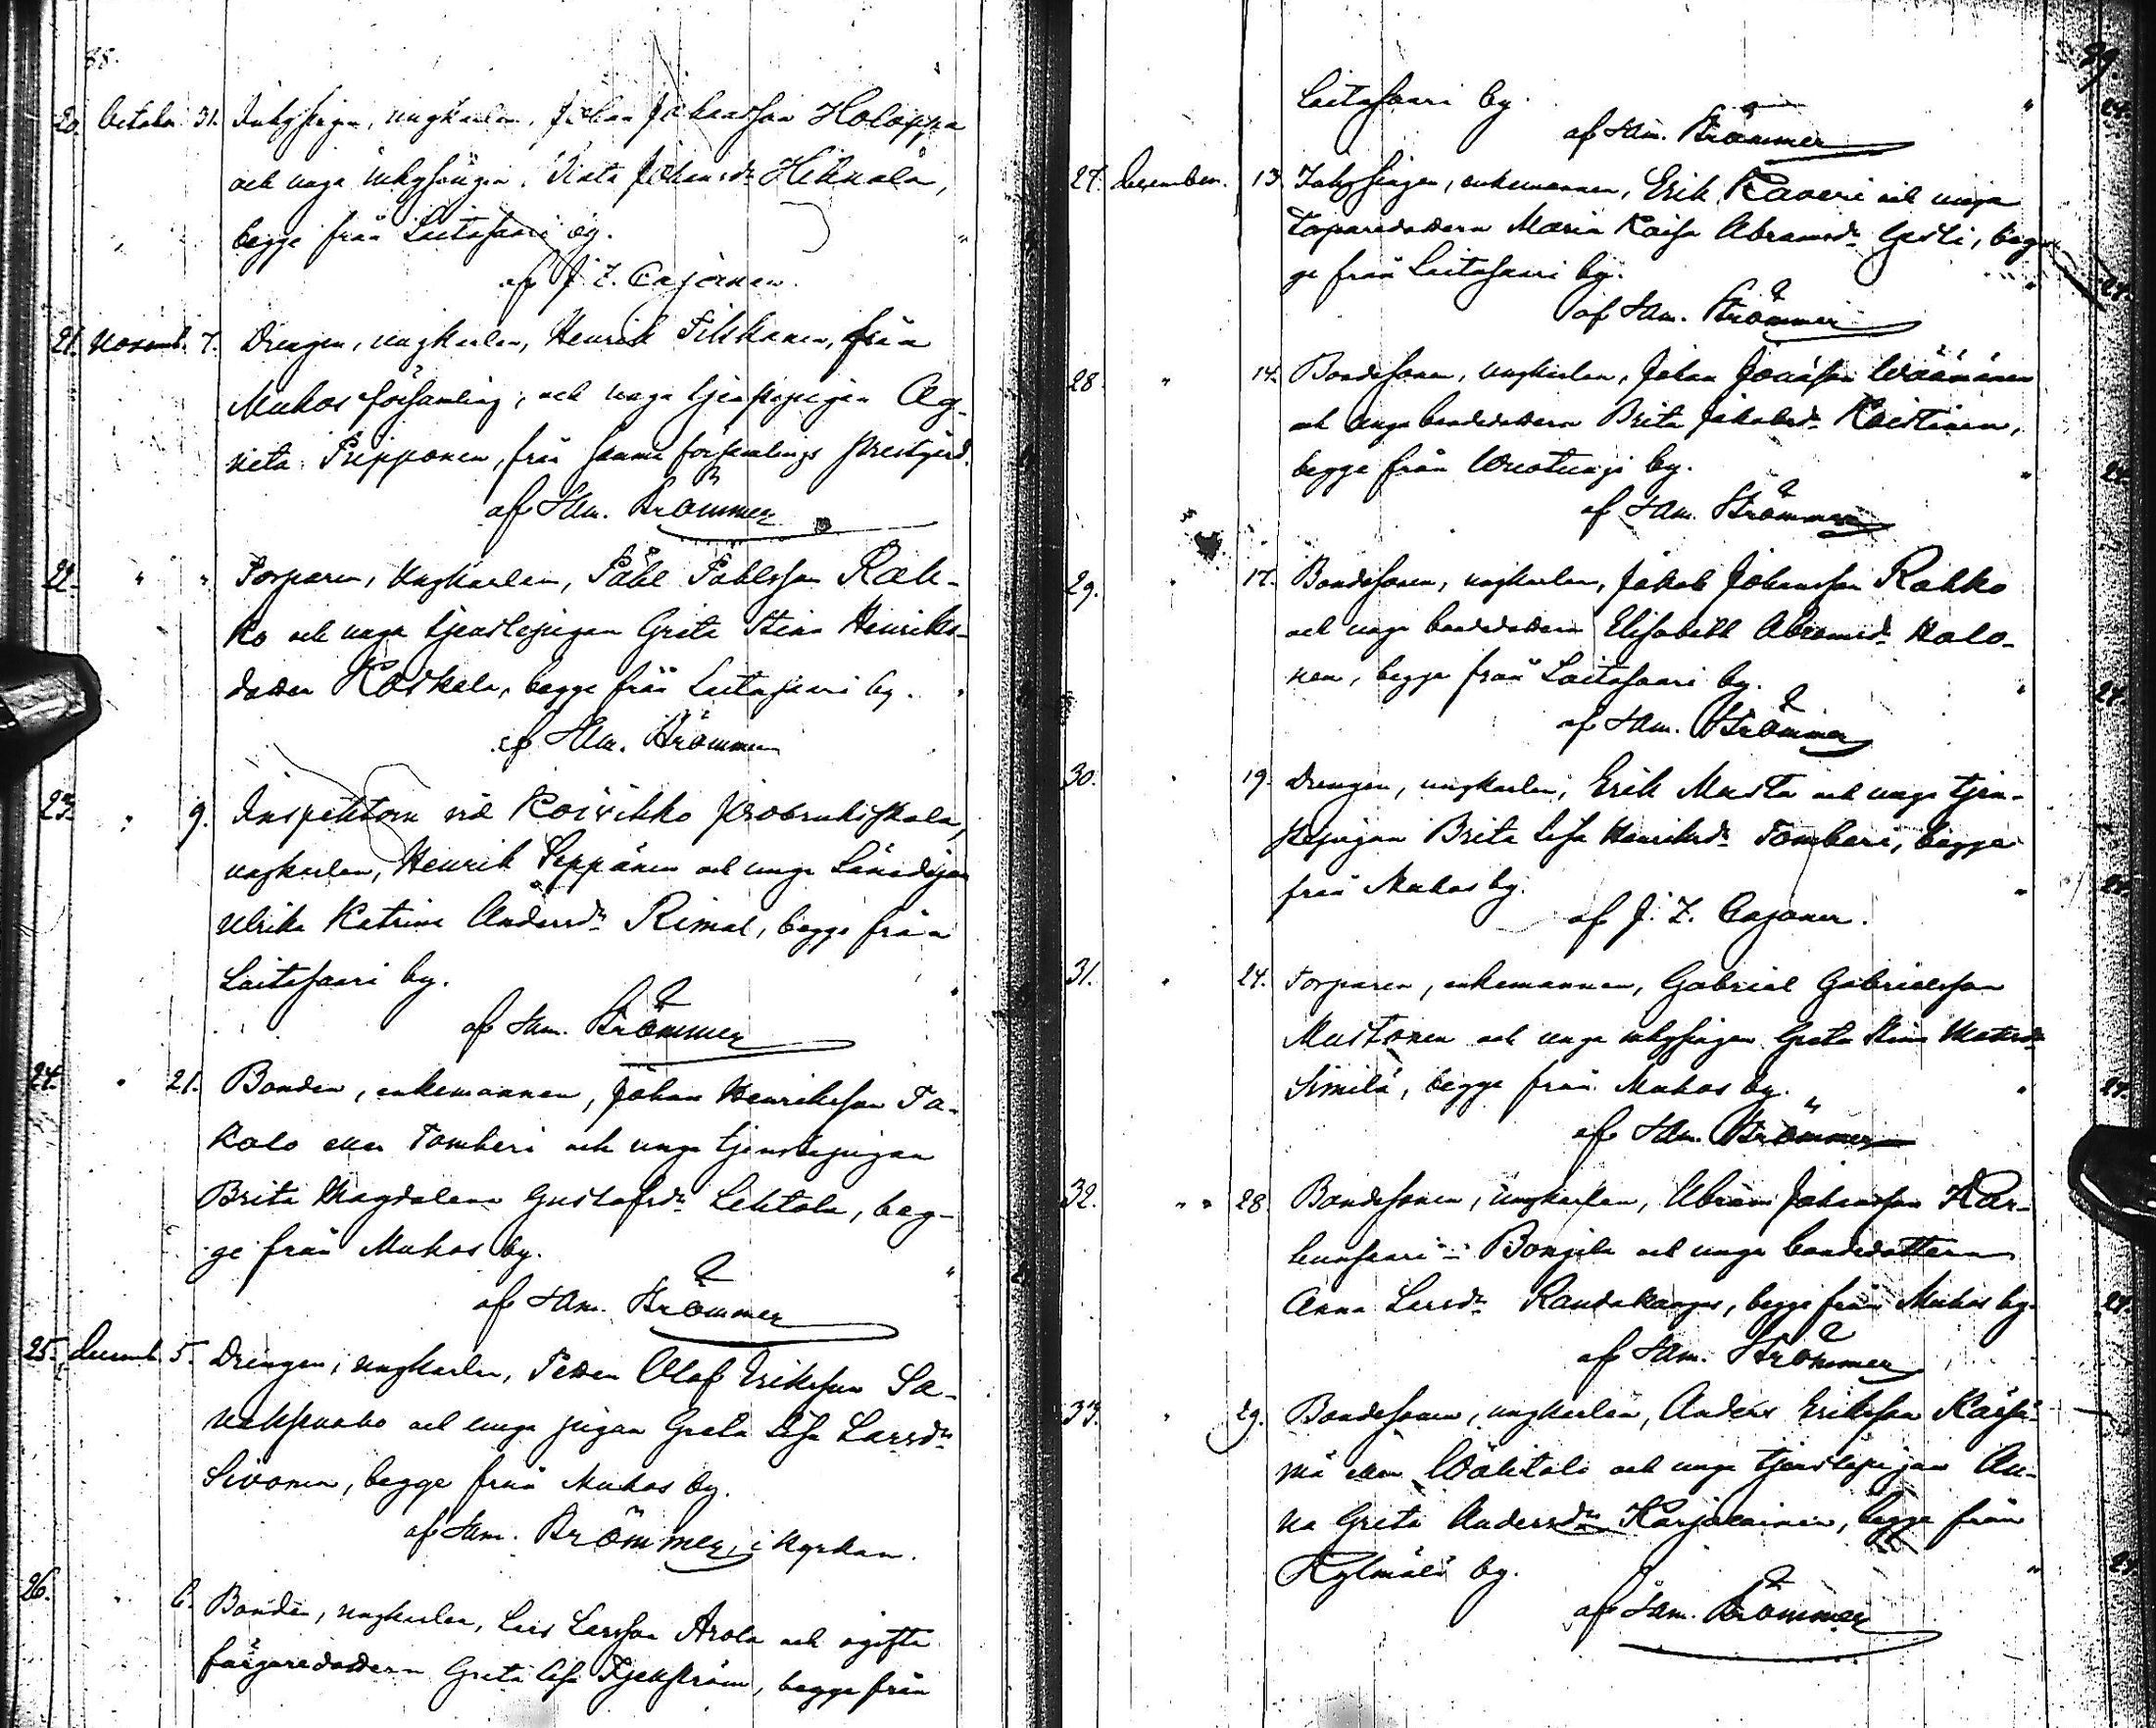 88.
20. October 31. Inhysingen, ungkarlen, Johan Johansson Holappa
och unga inhysingen, Johansdr Heikkala,
begge från Laitasaari by.
af J. Z. Cajanen.
21. Novemb. 7. Drengen, ungkarlen, Henrik Tihkanen, från
Muhos församling, och unga tjenstepigan Ag-
neta Piipponen, från samma församlings Prestgård.
af Sam. Brömmer
22. " " Torparen, Ungkarlen, Påhl Påhlsson Rah-
ko och unga tjenstepigan Greta Stina Henriks-
dotter Koskela, begge från Laitasaari by.
af Sam. Brömmer
23. " 9. Inspektorn vid Koivikko Jordbruksskola,
ungkarlen, Henrik Seppänen och unga
Ulrika Katrina Andersdr Rimal, begge från
Laitasaari by.
af Sam. Brömmer
24. " 21. Bonden, enkemannen, Johan Henriksson Ta-
kalo eller Tomberi och unga tjenstepigan
Brita Magdalena Gustafsdr Lehtola, beg-
ge från Muhos by.
af Sam. Brömmer
25. Decemb. 5. Drengen, ungkarlen, Petter Olof Eriksson Sa-
och unga pigan Greta Lisa Larsdr
Sivonen, begge från Muhos by.
af Sam. Brömmer, i kyrkan.
26. " 6. Bonden, ungkarlen, Lars Larsson Arola och ogifta
färgaredottern Greta Lisa, begge från
89
Laitasaari by. "
af Sam. Brömmer
27. December. 13. Inhysingen, enkemannen, Erik Kaveri och unga
Torparedottern Maria Kaisa Abramsdr Gasti, beg-
ge från Laitasaari by. "
af Sam. Brömmer
28. " 14. Bondesonen, ungkarlen, Johan Jonasson Wäänänen
och unga bondedottern Brita Jakobsdr Kaistinen,
begge från Wuotungi by. "
af Sam. Brömmer
29. " 17. Bondesonen, ungkarlen, Jakob Johansson Rahko
och unga bondedottern Elisabeth Abramsdr Halo-
nen, begge från Laitasaari by. "
af Sam. Brömmer
30. " 19. Drengen, ungkarlen, Erik Musta och unga tjen-
stepigan Brita Lisa Henriksdr Tomberi, begge
från Muhos by. "
af J. Z. Cajaner.
31. " 24. Torparen, enkemannen, Gabriel Gabrielsson
Mustonen och unga inhysingen Greta Stina Matsdr
Similä, begge från Muhos by. "
af Sam. Brömmer
32. " " 28. Bondesonen, ungkarlen, Abram Johansson Kar-
hunsaari - Bonjila och unga bondedottern
Anna Larsdr Raudakangas, begge från Muhos by.
af Sam. Brömmer
33. " 29. Bondesonen, ungkarlen, Anders Eriksson Kärsä-
mä eller Wälitalo och unga tjenstepigan An-
na Greta Andersdr Karjalainen, begge från
Kylmälä by. "
af Sam. Brömmer